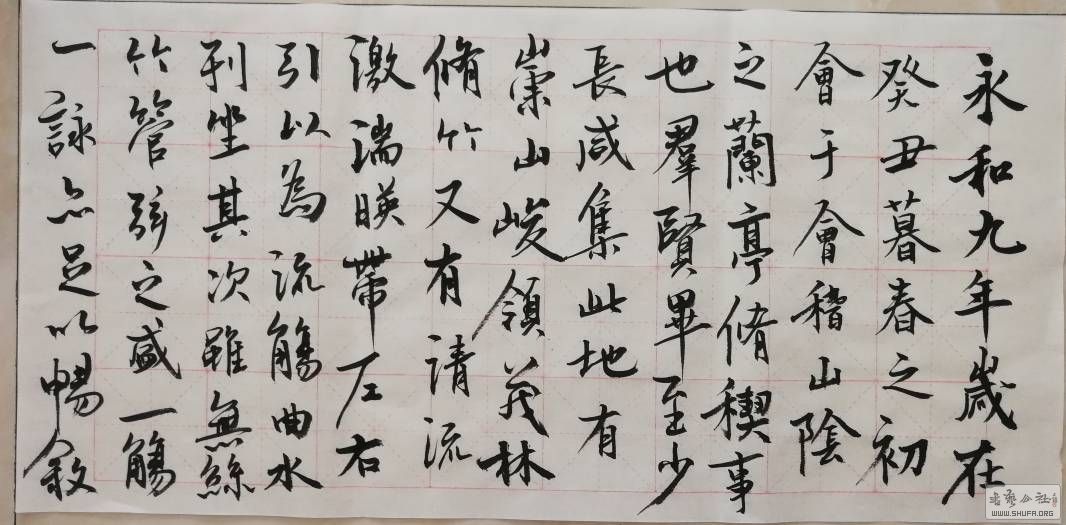 永和九年歲在
癸丑暮春之初
會于會稽山陰
之蘭亭脩稧事
也羣賢畢至少
長咸集此地有
崇山峻領茂林
脩竹又有清流
激湍暎帶左右
引以為流觴曲水
列坐其次雖無絲
竹管弦之盛一觴
一詠亦足以暢敘
书艺公社
WWW.SHUFA.ORG